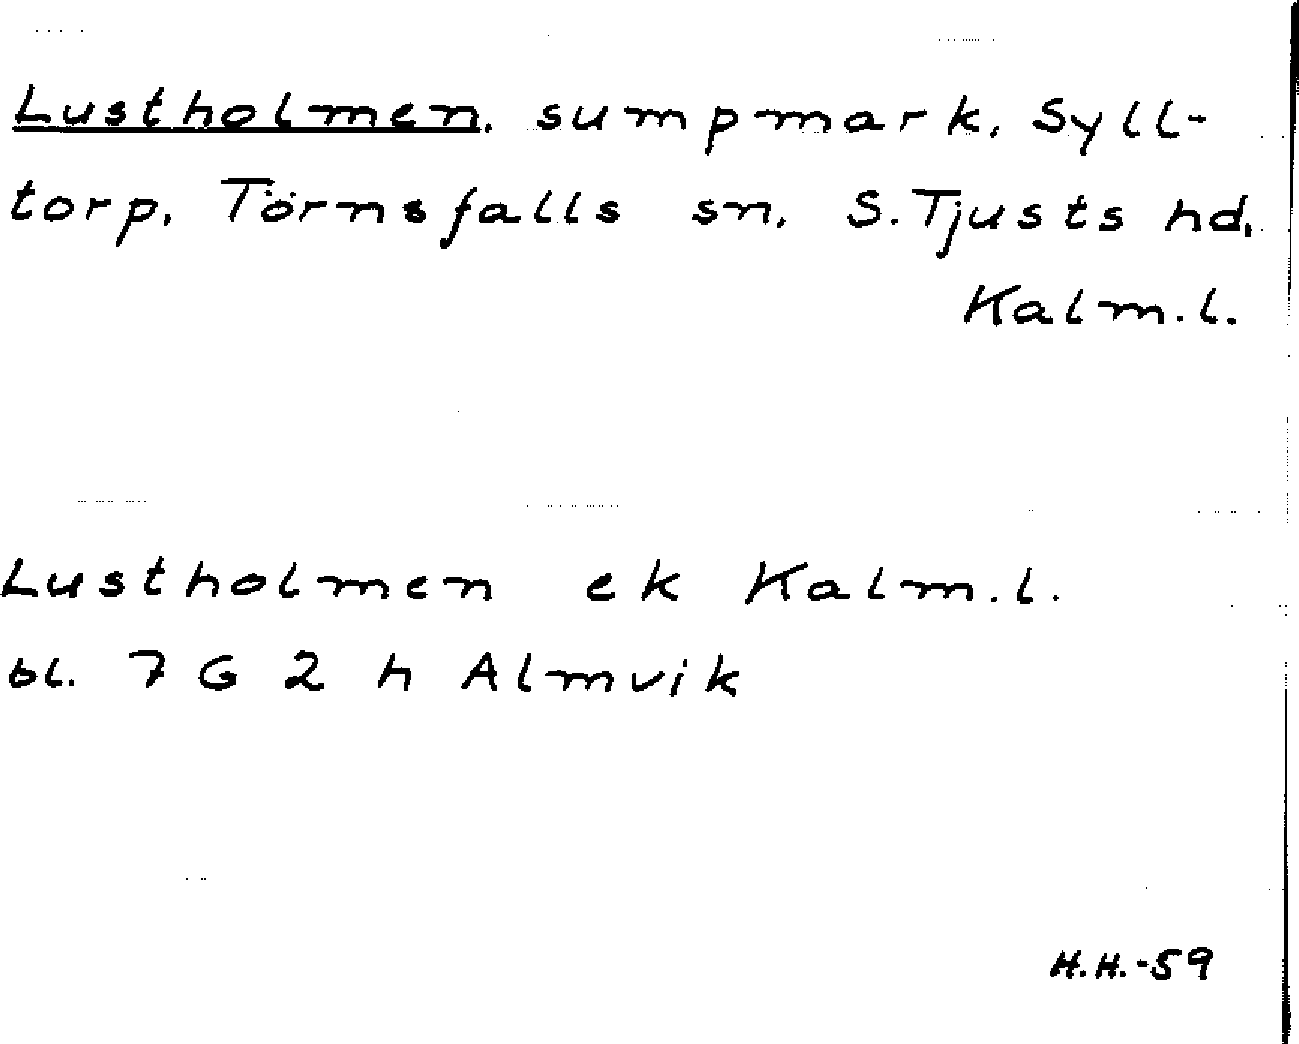 Lustholmen, sumpmark, Syll-
torp, Törnsfalls sn, S. Tjusts hd,
Kalm.l.
Lustholmen ek Kalm.l.
bl. 7 G 2 h Almvik
H.H.-59